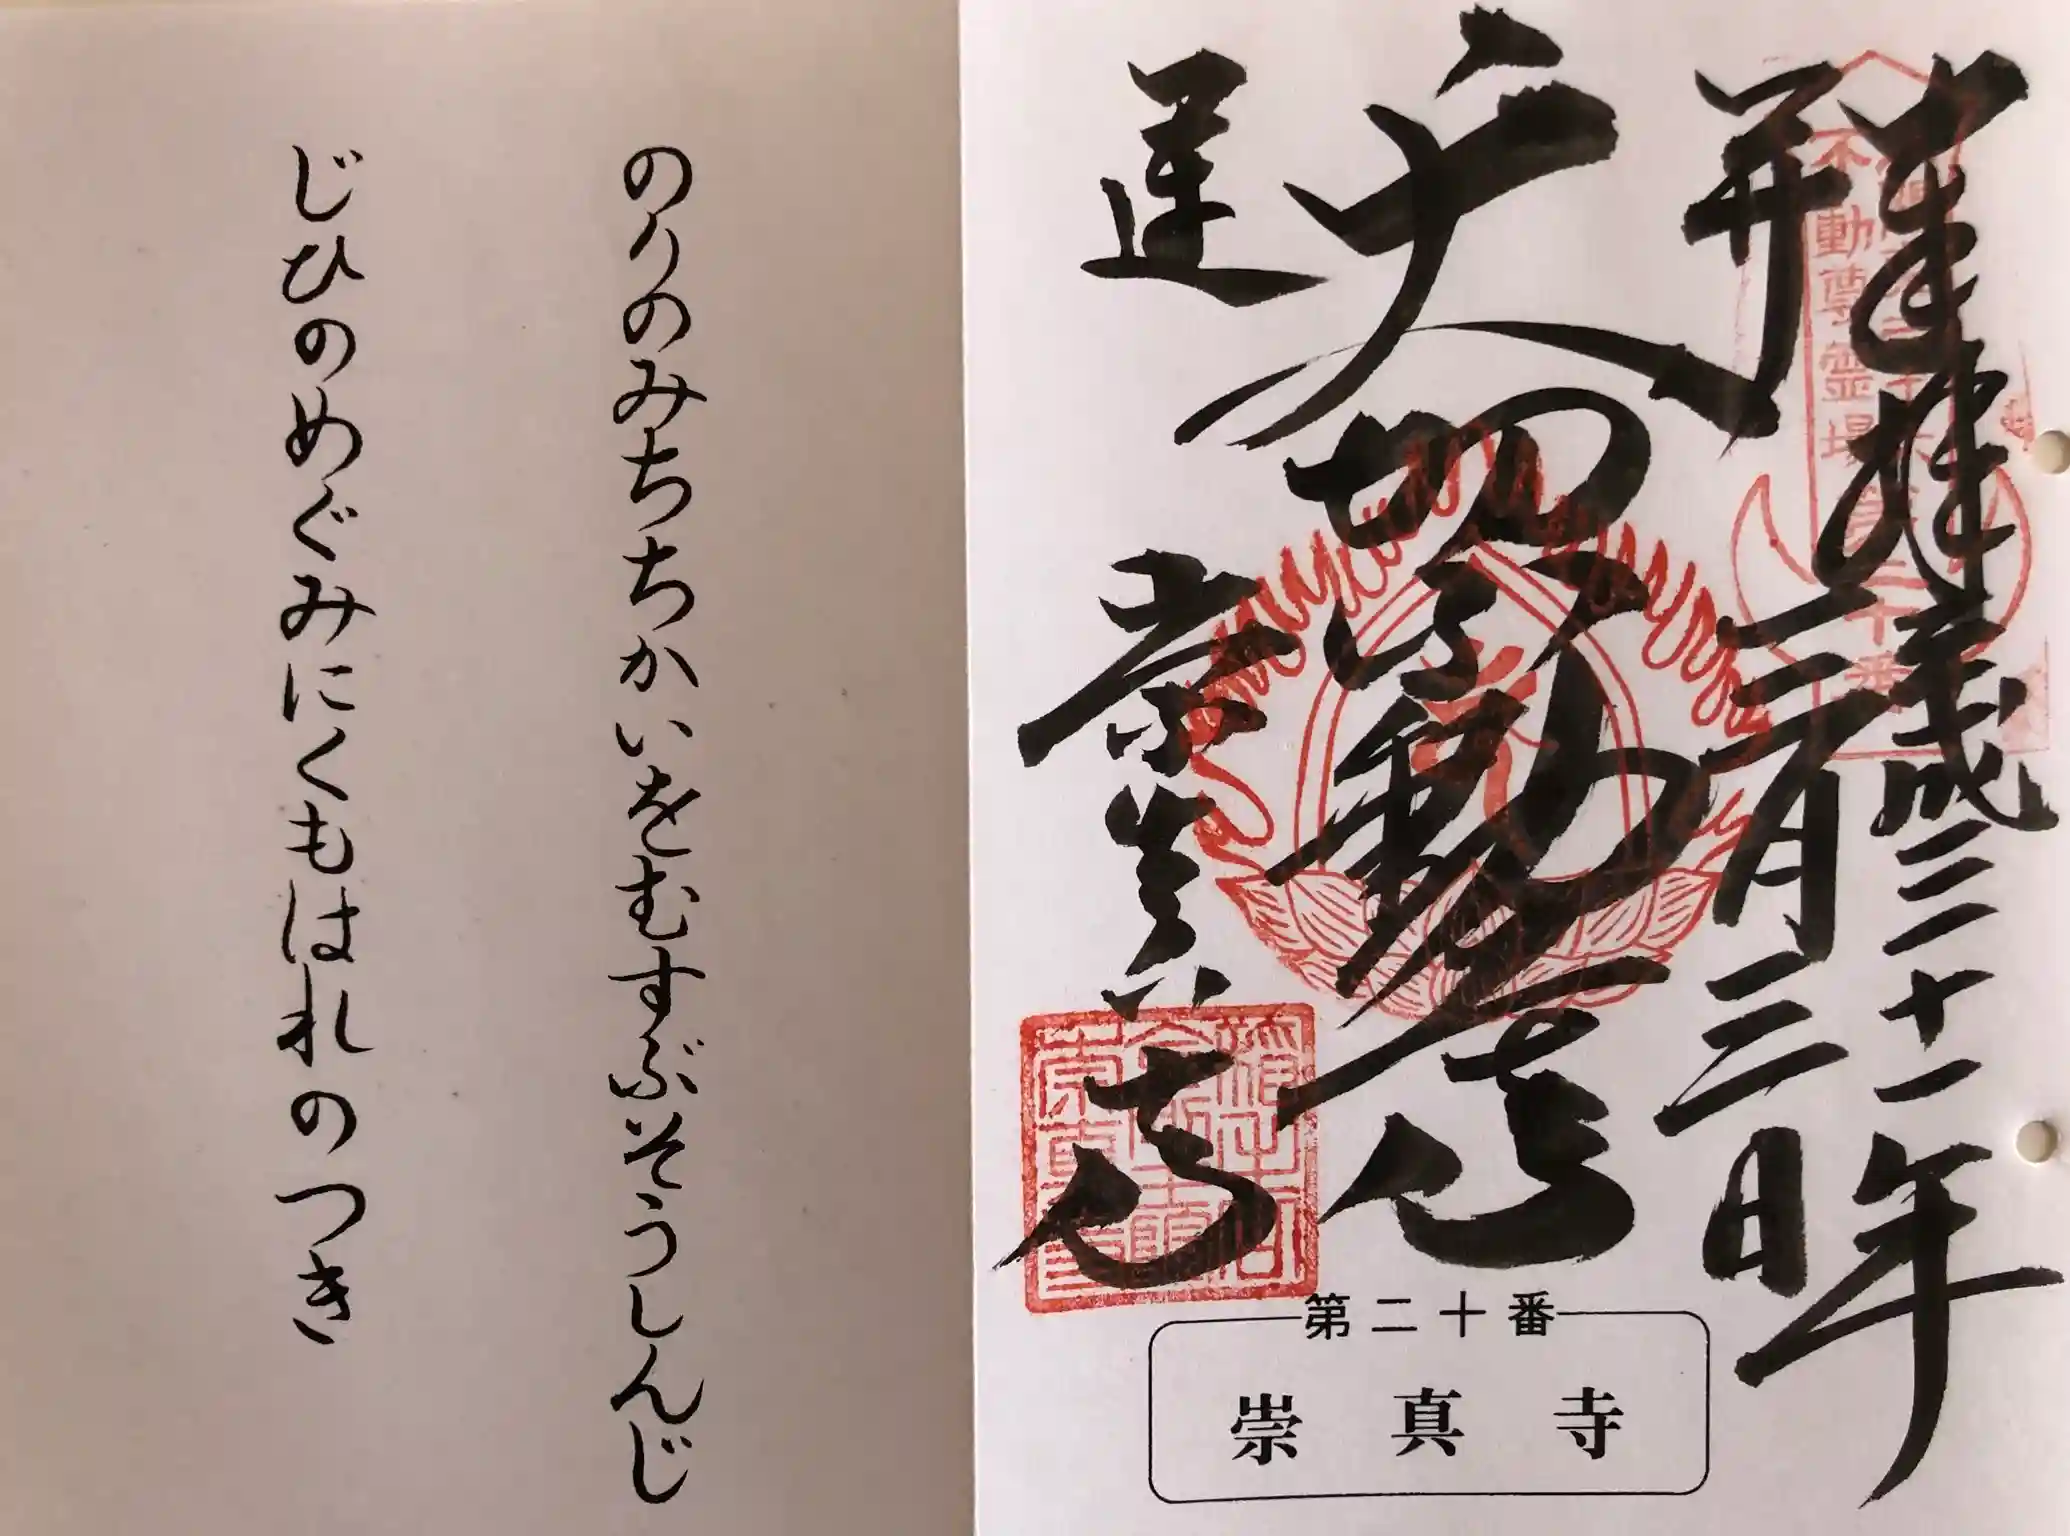 奉拝 平成三十一年
開 月三日
大切不動尊
運 崇真寺
不動尊霊場
第二十番
崇真寺
のりのみちちかいをむすぶそうしんじ
じひのめぐみにくもはれのつき